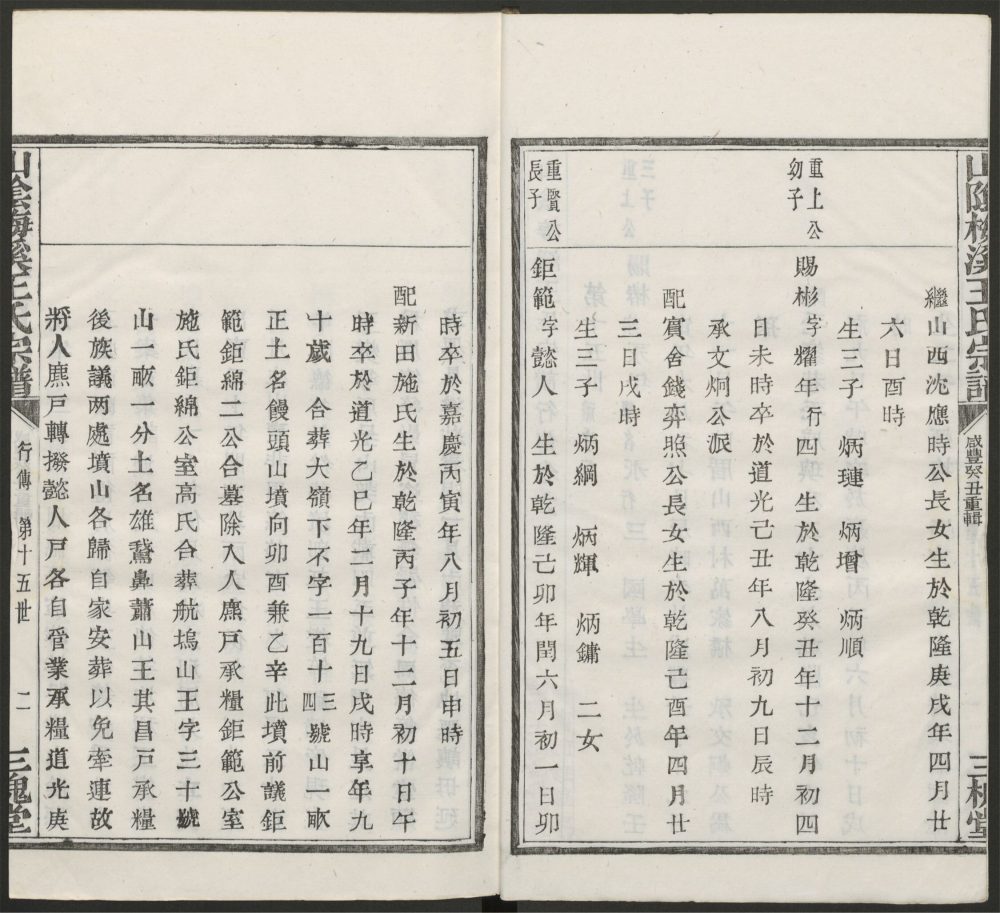 山陰梅溪王氏宗譜
咸豐癸丑重輯
三槐堂
繼山西沈應時公長女生於乾隆庚戌年四月廿
六日酉時
生三子 炳璉 炳增 炳順
重上公
幼子
賜彬字耀年行四生於乾隆癸丑年十二月初四
日未時卒於道光己丑年八月初九日辰時
承文炯公派
配賓舍錢弈照公長女生於乾隆己酉年四月廿
三日戌時
生三子 炳綱 炳輝 炳鏞 二女
重賢公
長子
鉅範字懿人 生於乾隆己卯年閏六月初一日卯
時卒於嘉慶丙寅年八月初五日申時
配新田施氏生於乾隆丙子年十二月初十日午
時卒於道光乙巳年二月十九日戌時享年九
十歲合葬大嶺下不字一百十三四號山一畝
正土名饅頭山墳向卯酉兼乙辛此墳前議鉅
範鉅綿二公合墓除入人廌戸承糧鉅範公室
施氏鉅綿公室高氏合葬航塢山王字三十號
山一畝二分土名雄鵞鼻蕭山王其昌戸承糧
後族議两處墳山各歸自家安葬以免牽連故
將人廌戸轉撥懿人戸各自晉業承糧道光庚
山陰梅溪王氏宗譜
行傳 第十五世
二
三槐堂